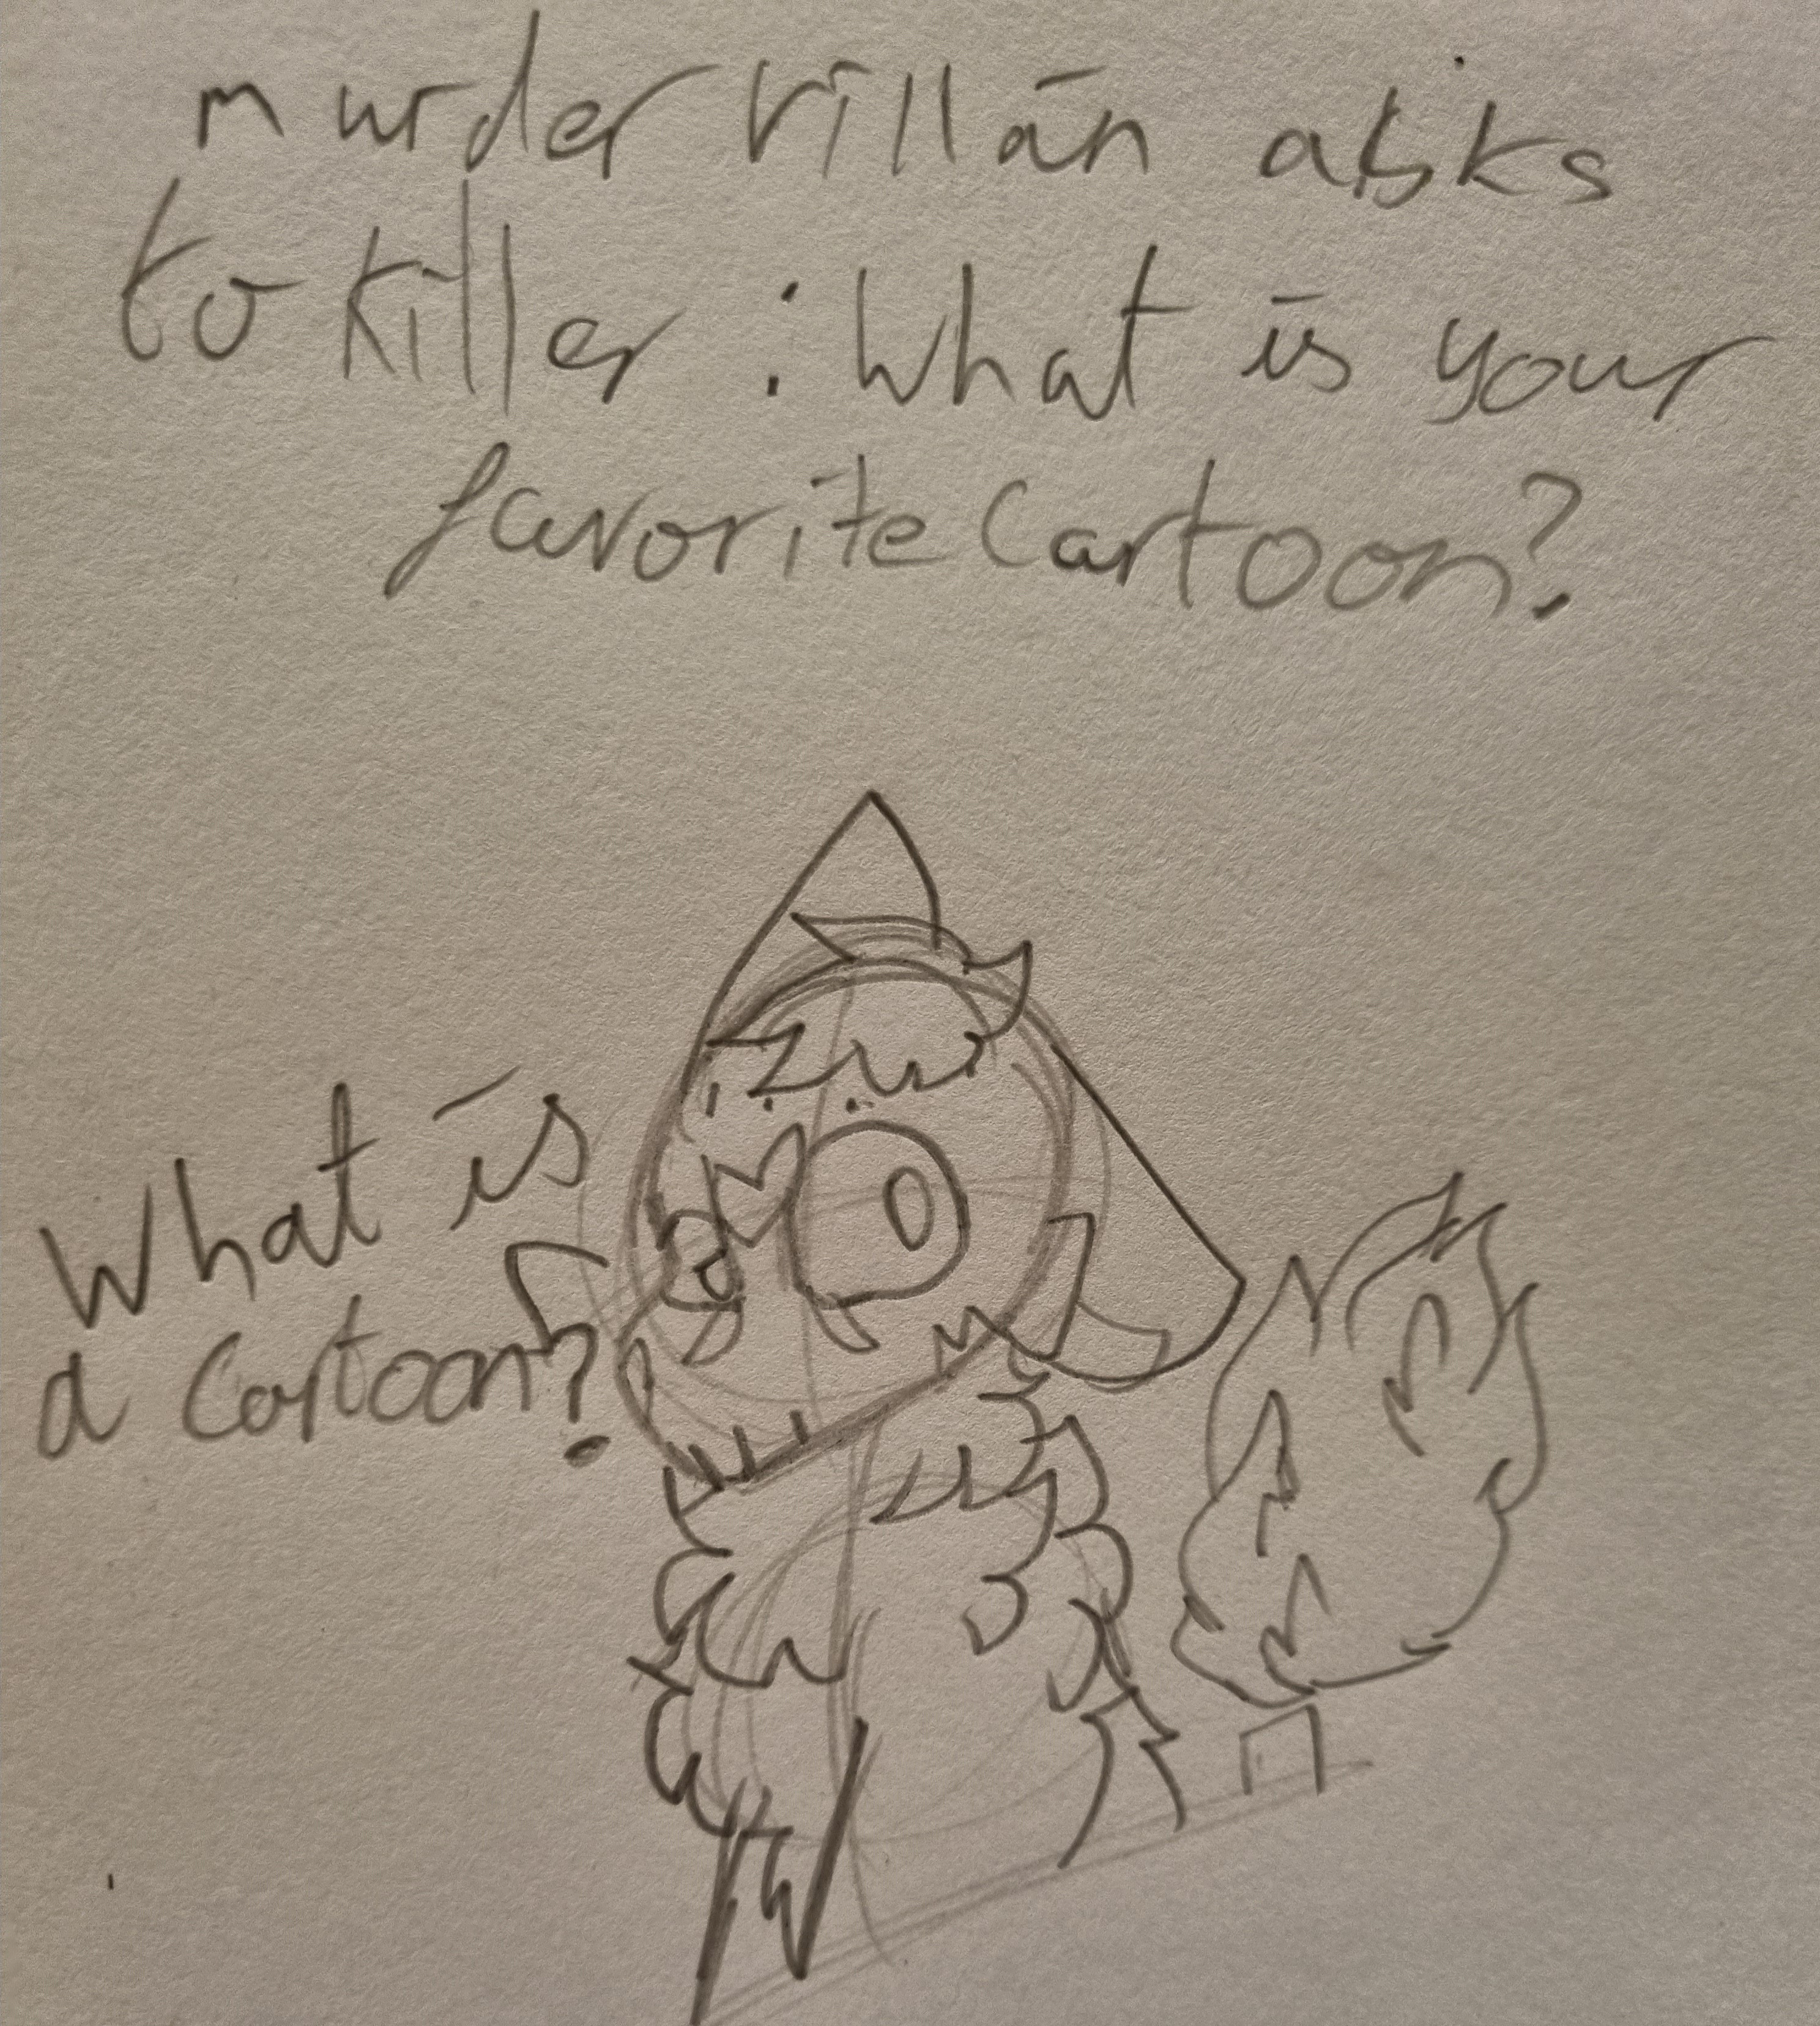 murder villan asks
to killer : What is your
favorite Cartoon?
What is
a Cartoon?